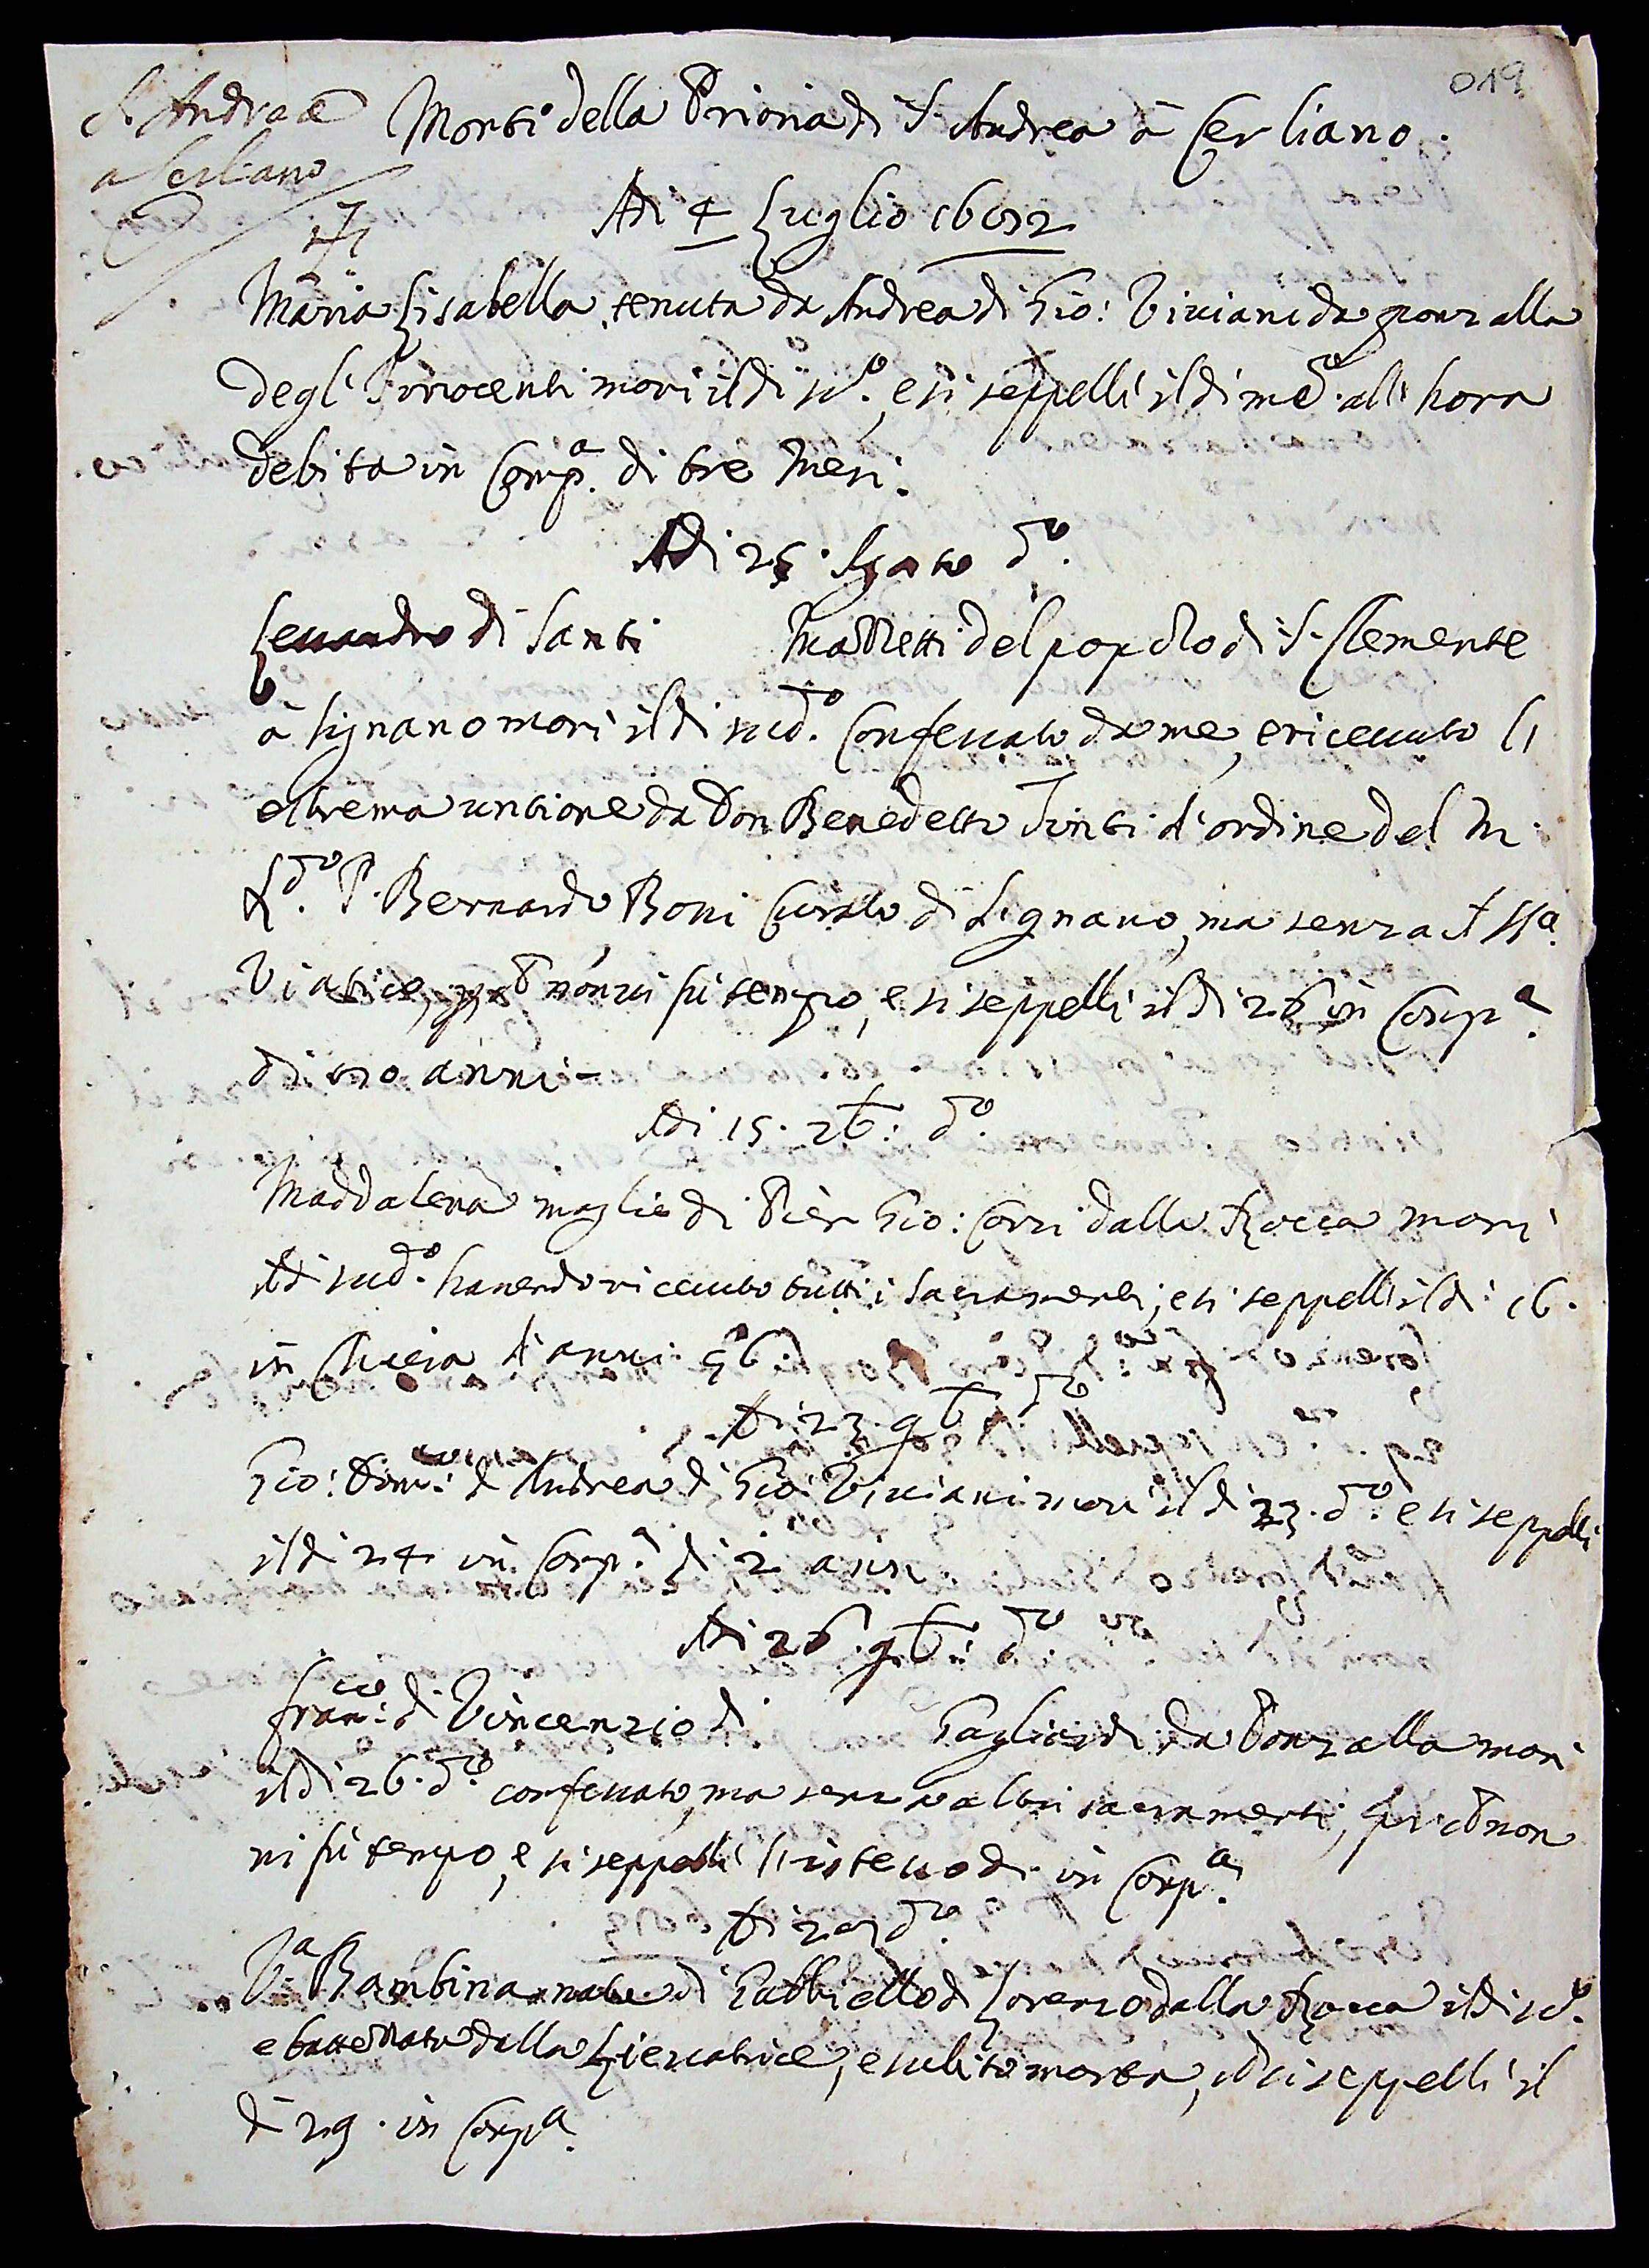 019
S. Andrea
a Cerliano
Morti della Prioria di S. Andrea à Cerliano.
Adi 4 Luglio 1692
Maria Lisabella tenuta da Andrea di Gio: Viviani da ponzalla
degl'Innocenti morì il di sud.o, e si seppellì il di med.o all'hora
debita in Comp.a di tre mesi.
Adi 25. Agosto d.o
di Santi Maretti del popolo di S. Clemente
à Signano morì il di sud.o Confessato da me, e ricevuto l'
estrema untione da Don Benedetto Tinti d'ordine del M.
R.do P. Bernardo Boni Curato di Signano, ma senza il SS.o
Viatico, p.che non vi fù tempo, e si seppellì il di 26 in Comp.a
di anni -
Adi 15. 9b: d.o
Maddalena moglie di Pier Gio: Corsi dalla Rocca morì
Adi sud.o havendo ricevuto tutti i Sacramenti, e si seppellì il di 16.
in Chiesa d'anni 56.
Adi 23 9b. d.o
Gio: Dom.co di Andrea di Gio: Viviani morì il di 23. d.o e si seppellì
il di 24 in Comp.a di 2 anni
Adi 26. 9b: d.o
Fran.co di Vincenzio di Gagliardi da Ponzalla morì
il di 26. d.o confessato, ma senza altri sacramenti, perche non
vi fù tempo, e si seppellì l'istesso di in Comp.a
Adi 29 d.o
V.a Bambina nata di Gabbriello di Lorenzo dalla Rocca il di sud.o
e battezzata dalla Lievatrice, e subito morta, e si seppellì il
di 29. in Comp.a